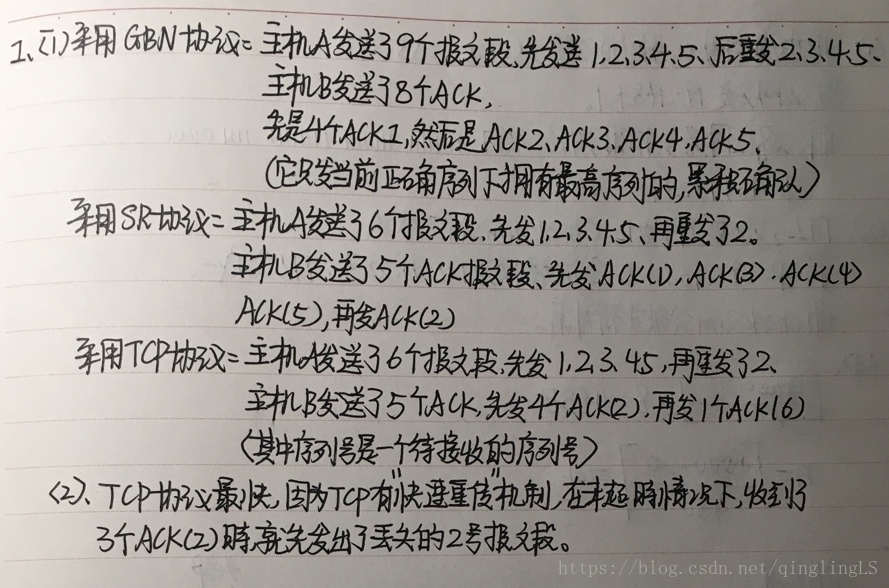 1、(1) 采用GBN协议=主机A发送了9个报文段、先发送1、2、3、4、5、后重发2、3、4、5、
主机B发送了8个ACK,
先是4个ACK1,然后是ACK2、ACK3、ACK4、ACK5、
(它只发当前正确序列下拥有最高序列的,累积确认)
采用SR协议=主机A发送了6个报文段、先发1、2、3、4、5、再重发了2。
主机B发送了5个ACK报文段、先发ACK(1),ACK(3)、ACK(4)
ACK(5),再发ACK(2)
采用TCP协议=主机A发送了6个报文段,先发1、2、3、4、5,再重发了2、
主机B发送了5个ACK,先发4个ACK(2),再发1个ACK(6)
(其中序列号是一个待接收的序列号)
(2)、TCP协议最快,因为TCP有"快速重传"机制,在未超时情况下,收到了
3个ACK(2)时,就先发出了丢失的2号报文段。
https://blog.csdn.net/qinglingLS